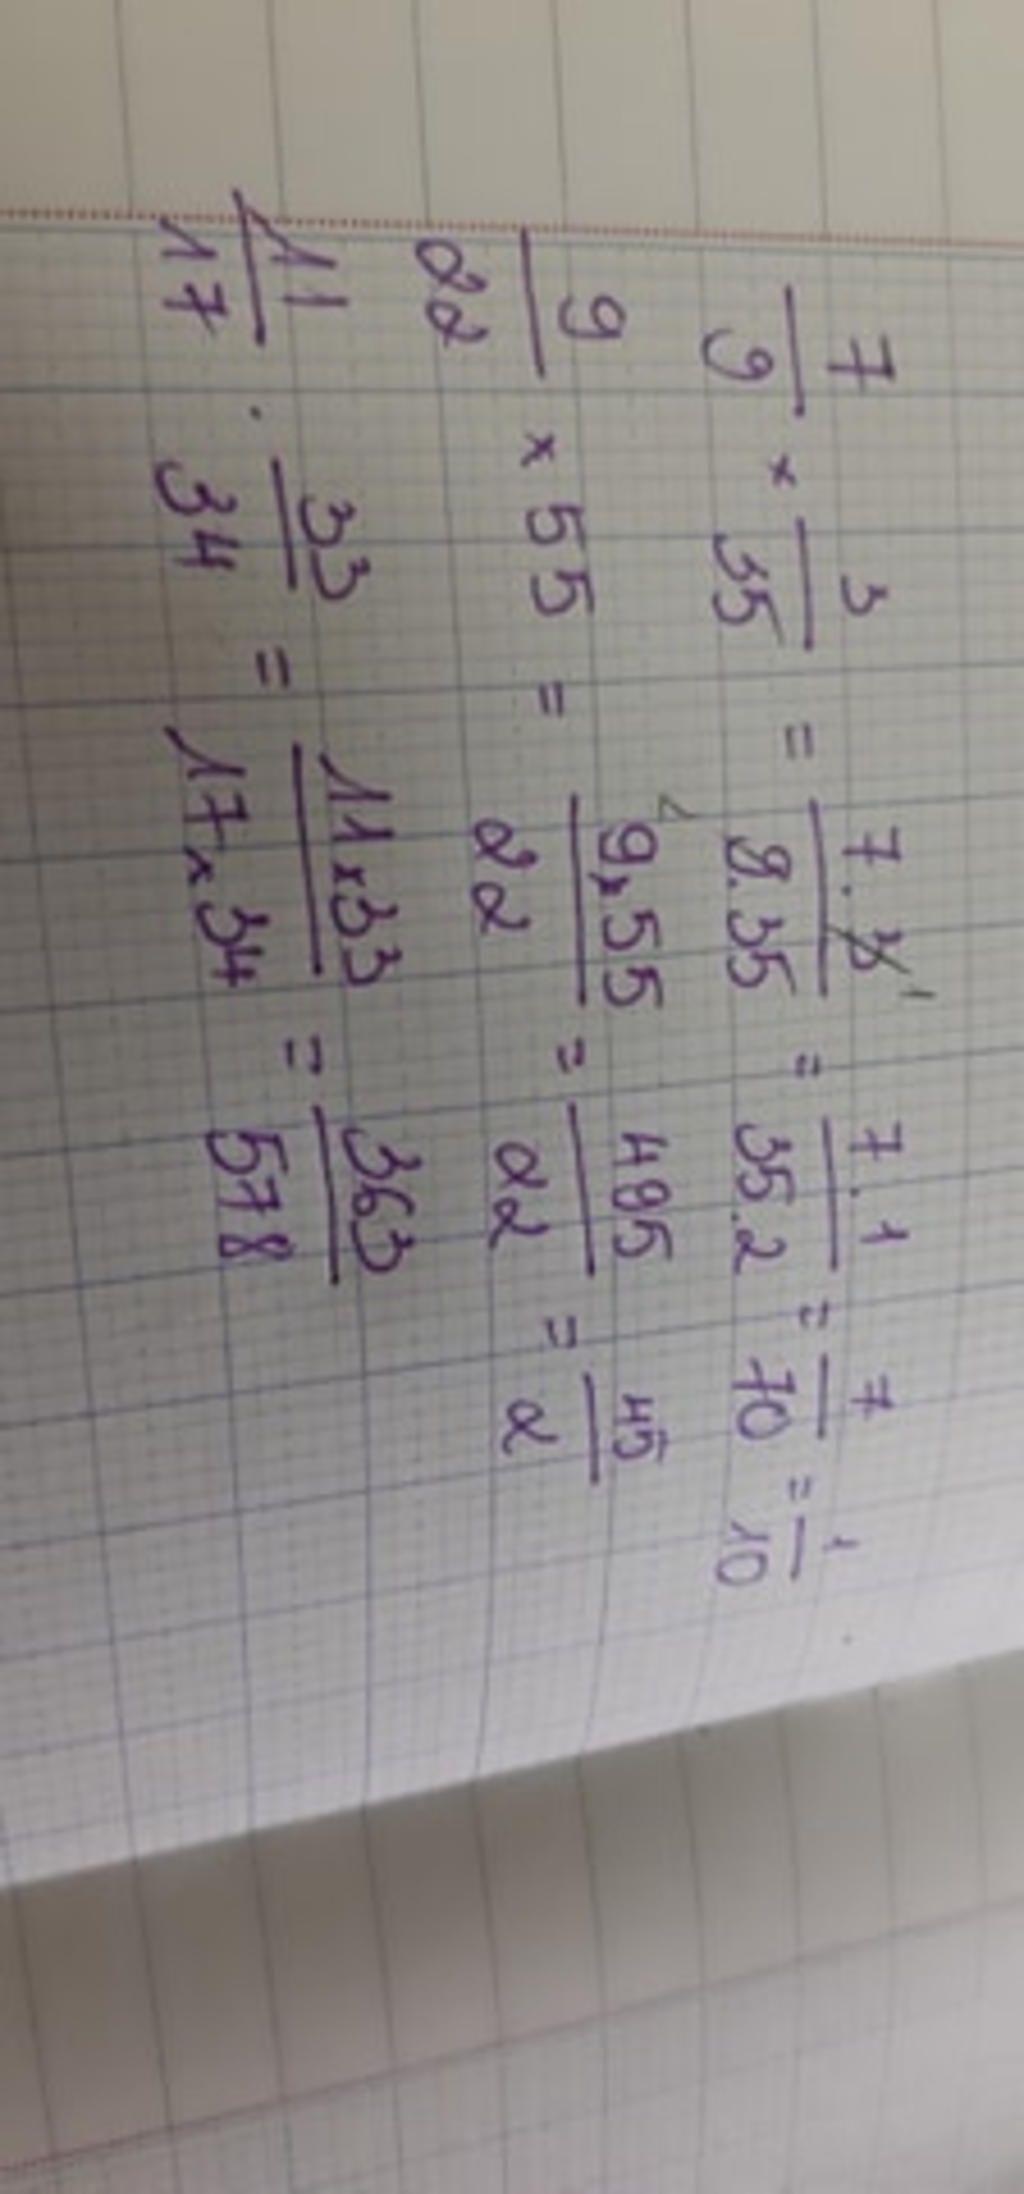 7/9 × 3/35 = 7.3/9.35 = 7.1/35.2 = 7/70 = 1/10
9/22 × 55 = 9×55/22 = 495/22 = 45/2
11/17 . 33/34 = 11×33/17×34 = 363/578